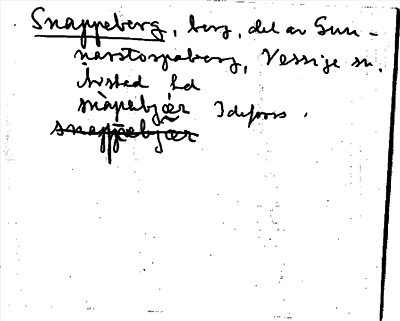 Snappeberg, berg, del av Gun-
narstorpaberg, Vessige sn.
Årstad hd
snàpebjǽr Idefors.
snappebjær